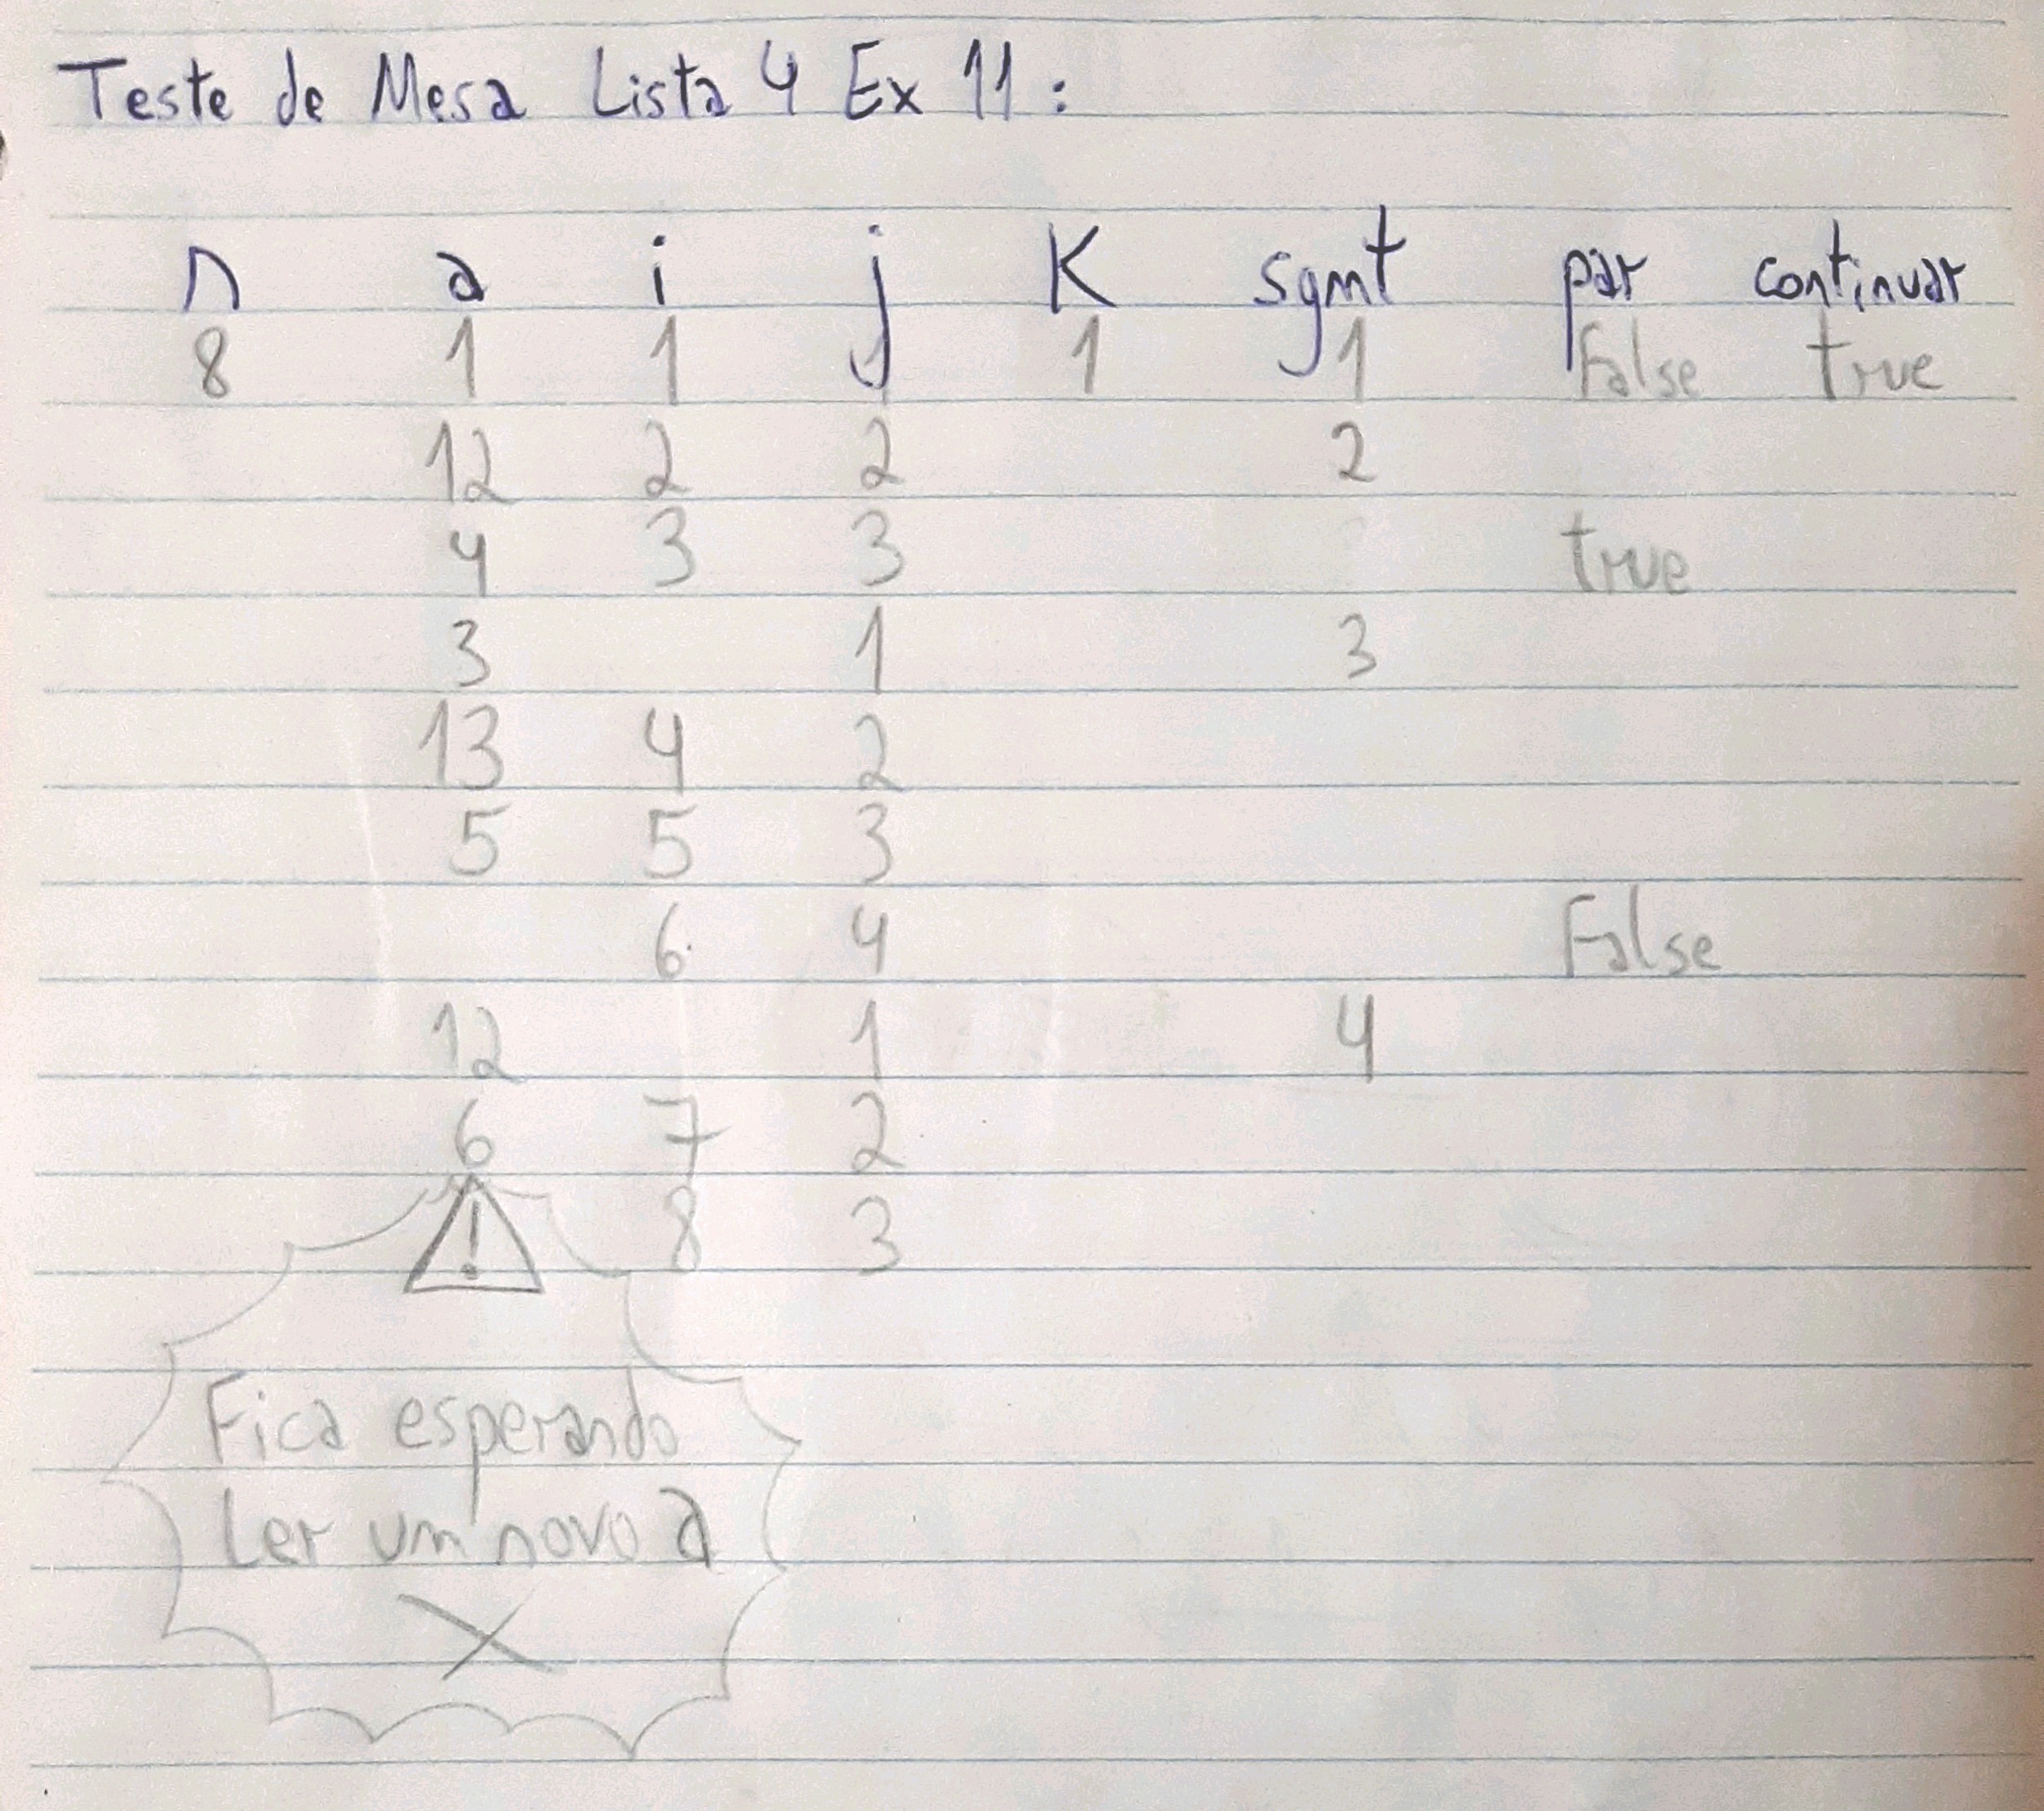 Teste de Mesa Lista 4 Ex 11:
n a i j K sgmt par continuar
8 1 1 1 1 1 False true
12 2 2 2
4 3 3 true
3 1 3
13 4 2
5 5 3
6 4 False
12 1 4
6 7 2
! 8 3
Fica esperando
Ler um novo a
X